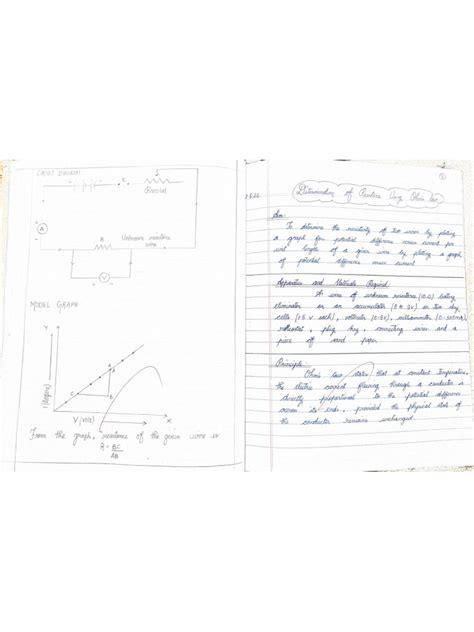 CIRCUIT DIAGRAM
K
Rheostat
A
R
Unknown resistance
wire
V
MODEL GRAPH
Y
I (Ampere)
A
C
B
V (Volt)
X
From the graph, resistance of the given wire is
R = BC
AB
Determination of Resistance Using Ohm's law
Aim:
To determine the resistivity of two wires by plotting
a graph for potential difference versus current for
unit length of a given wire by plotting a graph
of potential difference versus current
Apparatus and Materials Required
A wire of unknown resistance (10 Ω) battery
eliminator or an accumulator (0 to 3V) or two dry
cells (1.5 V each), voltmeter (0-5V), milliammeter (0-500mA)
rheostat, plug key, connecting wires and a
piece of sand paper.
Principle:
Ohm's law states that at constant temperature,
the electric current flowing through a conductor is
directly proportional to the potential difference
across its ends, provided the physical state of
the conductor remains unchanged.